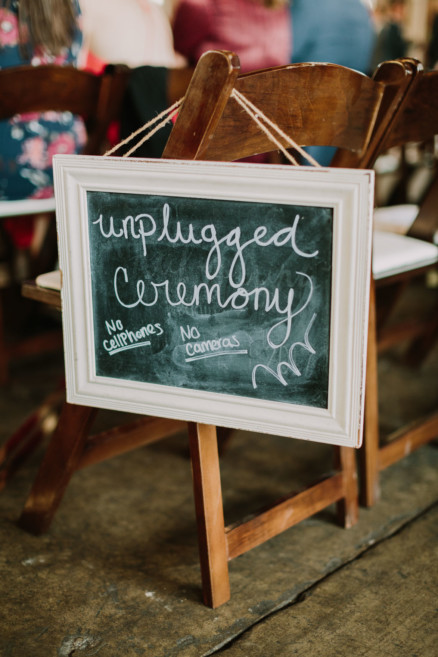 unplugged
Ceremony
No
cellphones
No
cameras